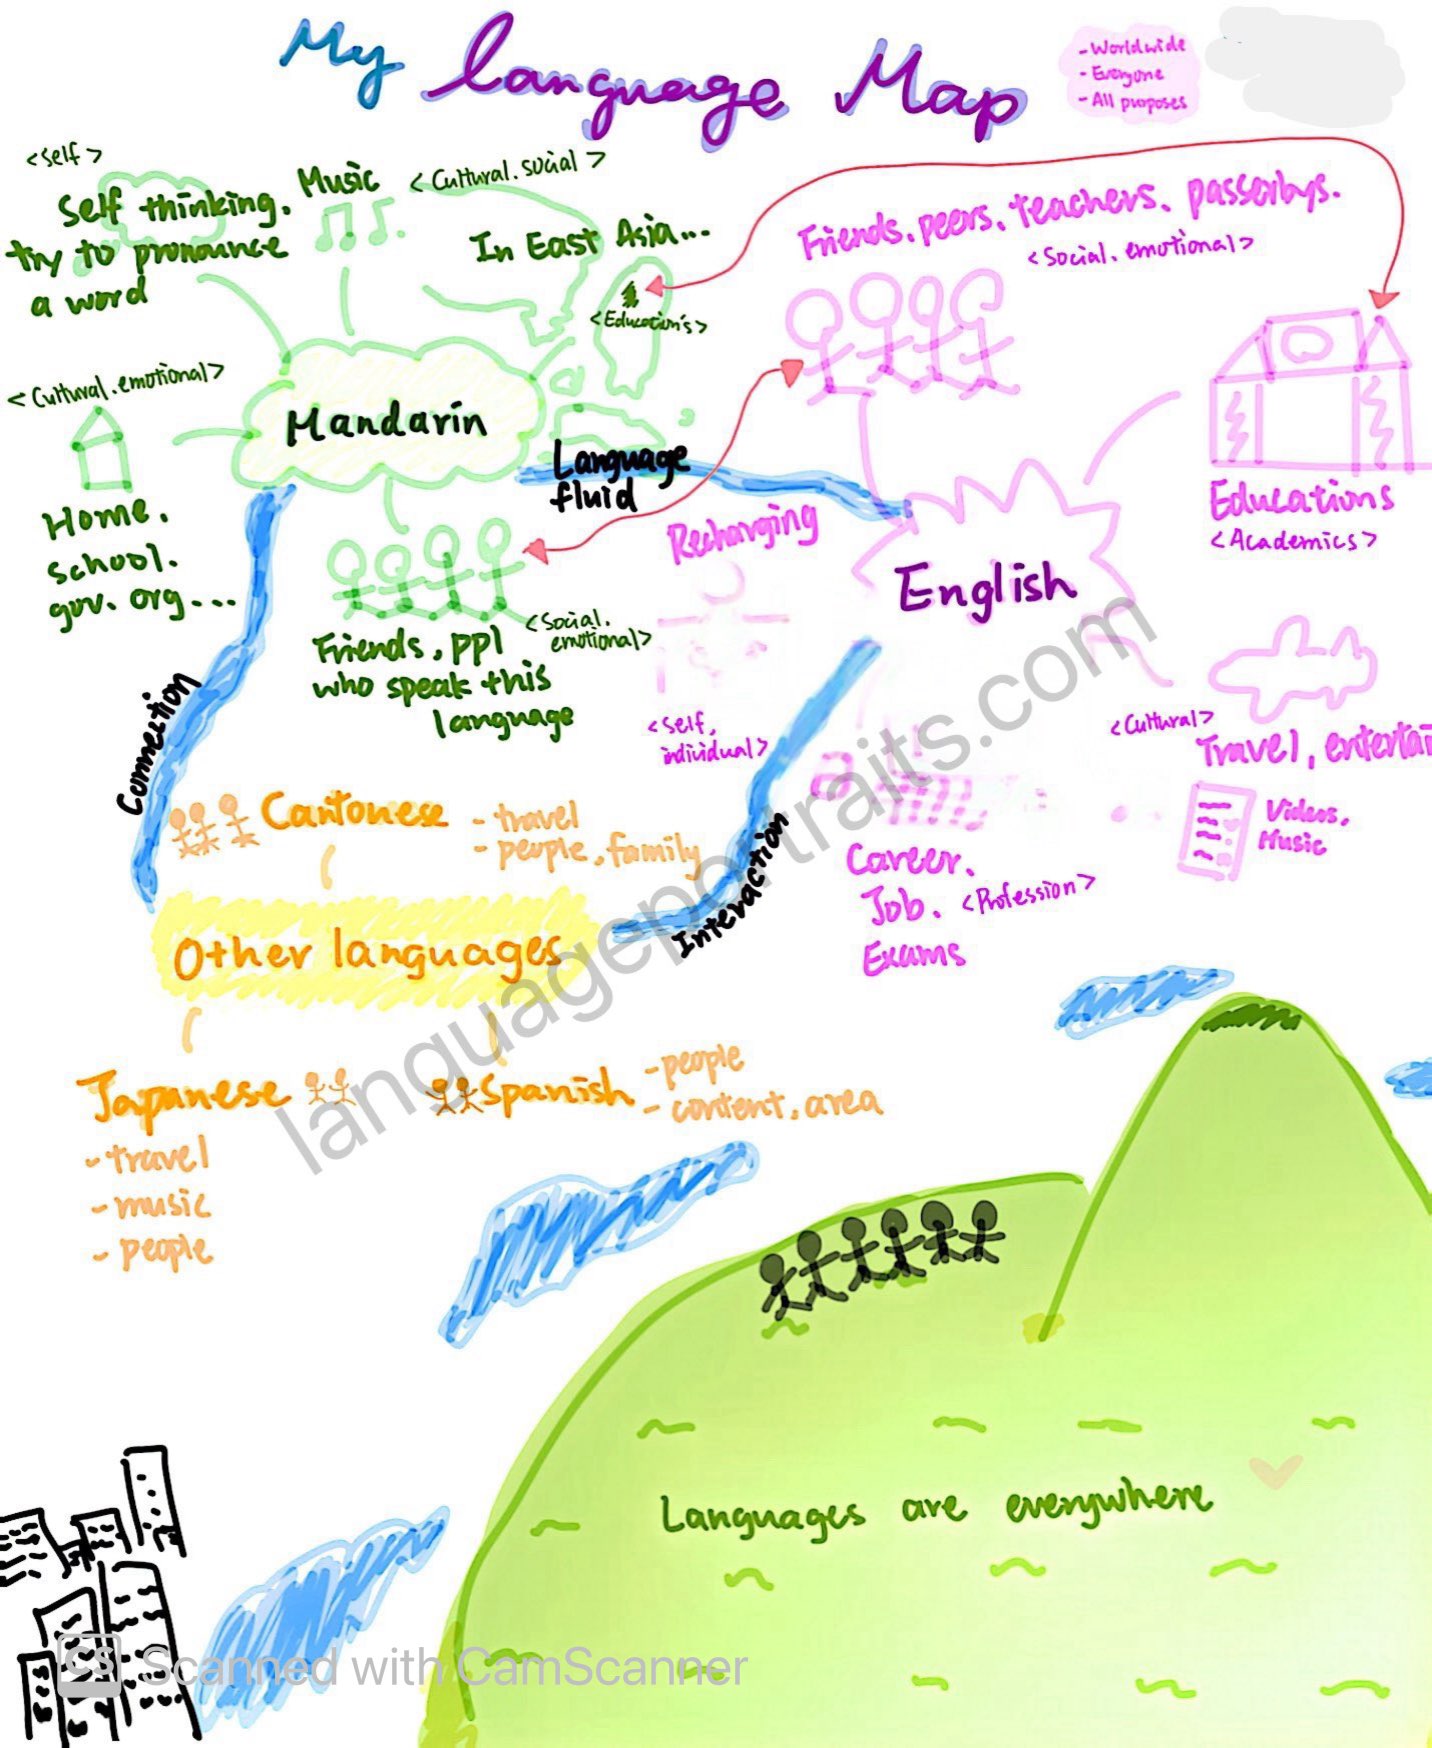 My Language Map
- Worldwide
- Everyone
- All purposes
<Self>
Self thinking.
try to pronounce
a word
Music
<Cultural. social>
In East Asia...
<Education's>
<Cultural. emotional>
Home.
school.
gov. org...
Mandarin
Friends, ppl
who speak this
language
<Social.
emotional>
Language
fluid
Friends. peers. teachers. passerbys.
<Social. emotional>
Educations
<Academics>
Recharging
<self,
individual>
English
<Cultural>
Travel, entertai
Videos.
Music
Career.
Job. <Profession>
Exams
Connection
Interaction
Cantonese
- travel
- people, family
Other languages
Japanese
- travel
- music
- people
Spanish
- people
- content, area
Languages are everywhere
languageportraits.com
CS Scanned with CamScanner